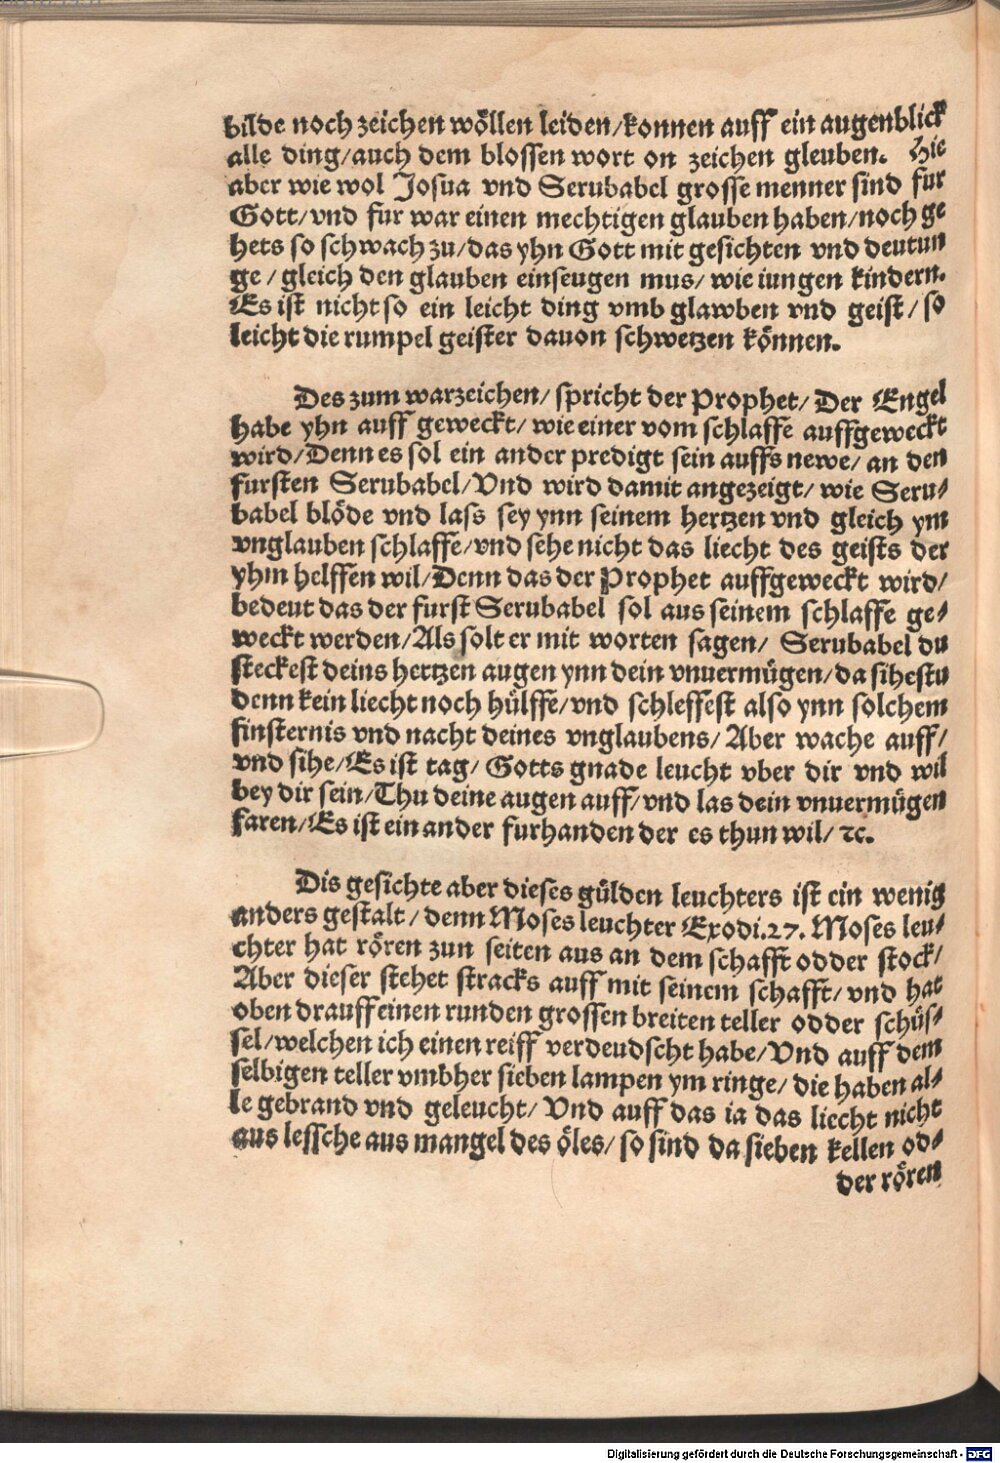 bilde noch zeichen wöllen leiden/konnen auff ein augenblick
alle ding/auch dem blossen wort on zeichen gleuben. Hie
aber wie wol Josua vnd Serubabel grosse menner sind fur
Gott/vnd fur war einen mechtigen glauben haben/noch ge
hets so schwach zu/das yhn Gott mit gesichten vnd deutun
ge/gleich den glauben einseugen mus/wie iungen kindern.
Es ist nicht so ein leicht ding vmb glawben vnd geist/so
leicht die rumpel geister dauon schwetzen können.
Des zum warzeichen/spricht der Prophet/Der Engel
habe yhn auff geweckt/wie einer vom schlaffe auffgeweckt
wird/Denn es sol ein ander predigt sein auffs newe/an den
fursten Serubabel/Vnd wird damit angezeigt/wie Seru/
babel blöde vnd lass sey ynn seinem hertzen vnd gleich ym
vnglauben schlaffe/vnd sehe nicht das liecht des geists der
yhm helffen wil/Denn das der Prophet auffgeweckt wird/
bedeut das der furst Serubabel sol aus seinem schlaffe ge/
weckt werden/Als solt er mit worten sagen/Serubabel du
steckest deins hertzen augen ynn dein vnuermügen/da sihestu
denn kein liecht noch hülffe/vnd schleffest also ynn solchem
finsternis vnd nacht deines vnglaubens/Aber wache auff/
vnd sihe/Es ist tag/Gotts gnade leucht vber dir vnd wil
bey dir sein/Thu deine augen auff/vnd las dein vnuermügen
faren/Es ist ein ander furhanden der es thun wil/ꝛc.
Dis gesichte aber dieses gülden leuchters ist ein wenig
anders gestalt/denn Moses leuchter Exodi.27. Moses leu/
chter hat rören zun seiten aus an dem schafft odder stock/
Aber dieser stehet stracks auff mit seinem schafft/vnd hat
oben drauff einen runden grossen breiten teller odder schüs/
sel/welchen ich einen reiff verdeudscht habe/Vnd auff dem
selbigen teller vmbher sieben lampen ym ringe/die haben al/
le gebrand vnd geleucht/Vnd auff das ia das liecht nicht
aus lessche aus mangel des öles/so sind da sieben kellen od/
der rören
Digitalisierung gefördert durch die Deutsche Forschungsgemeinschaft - DFG